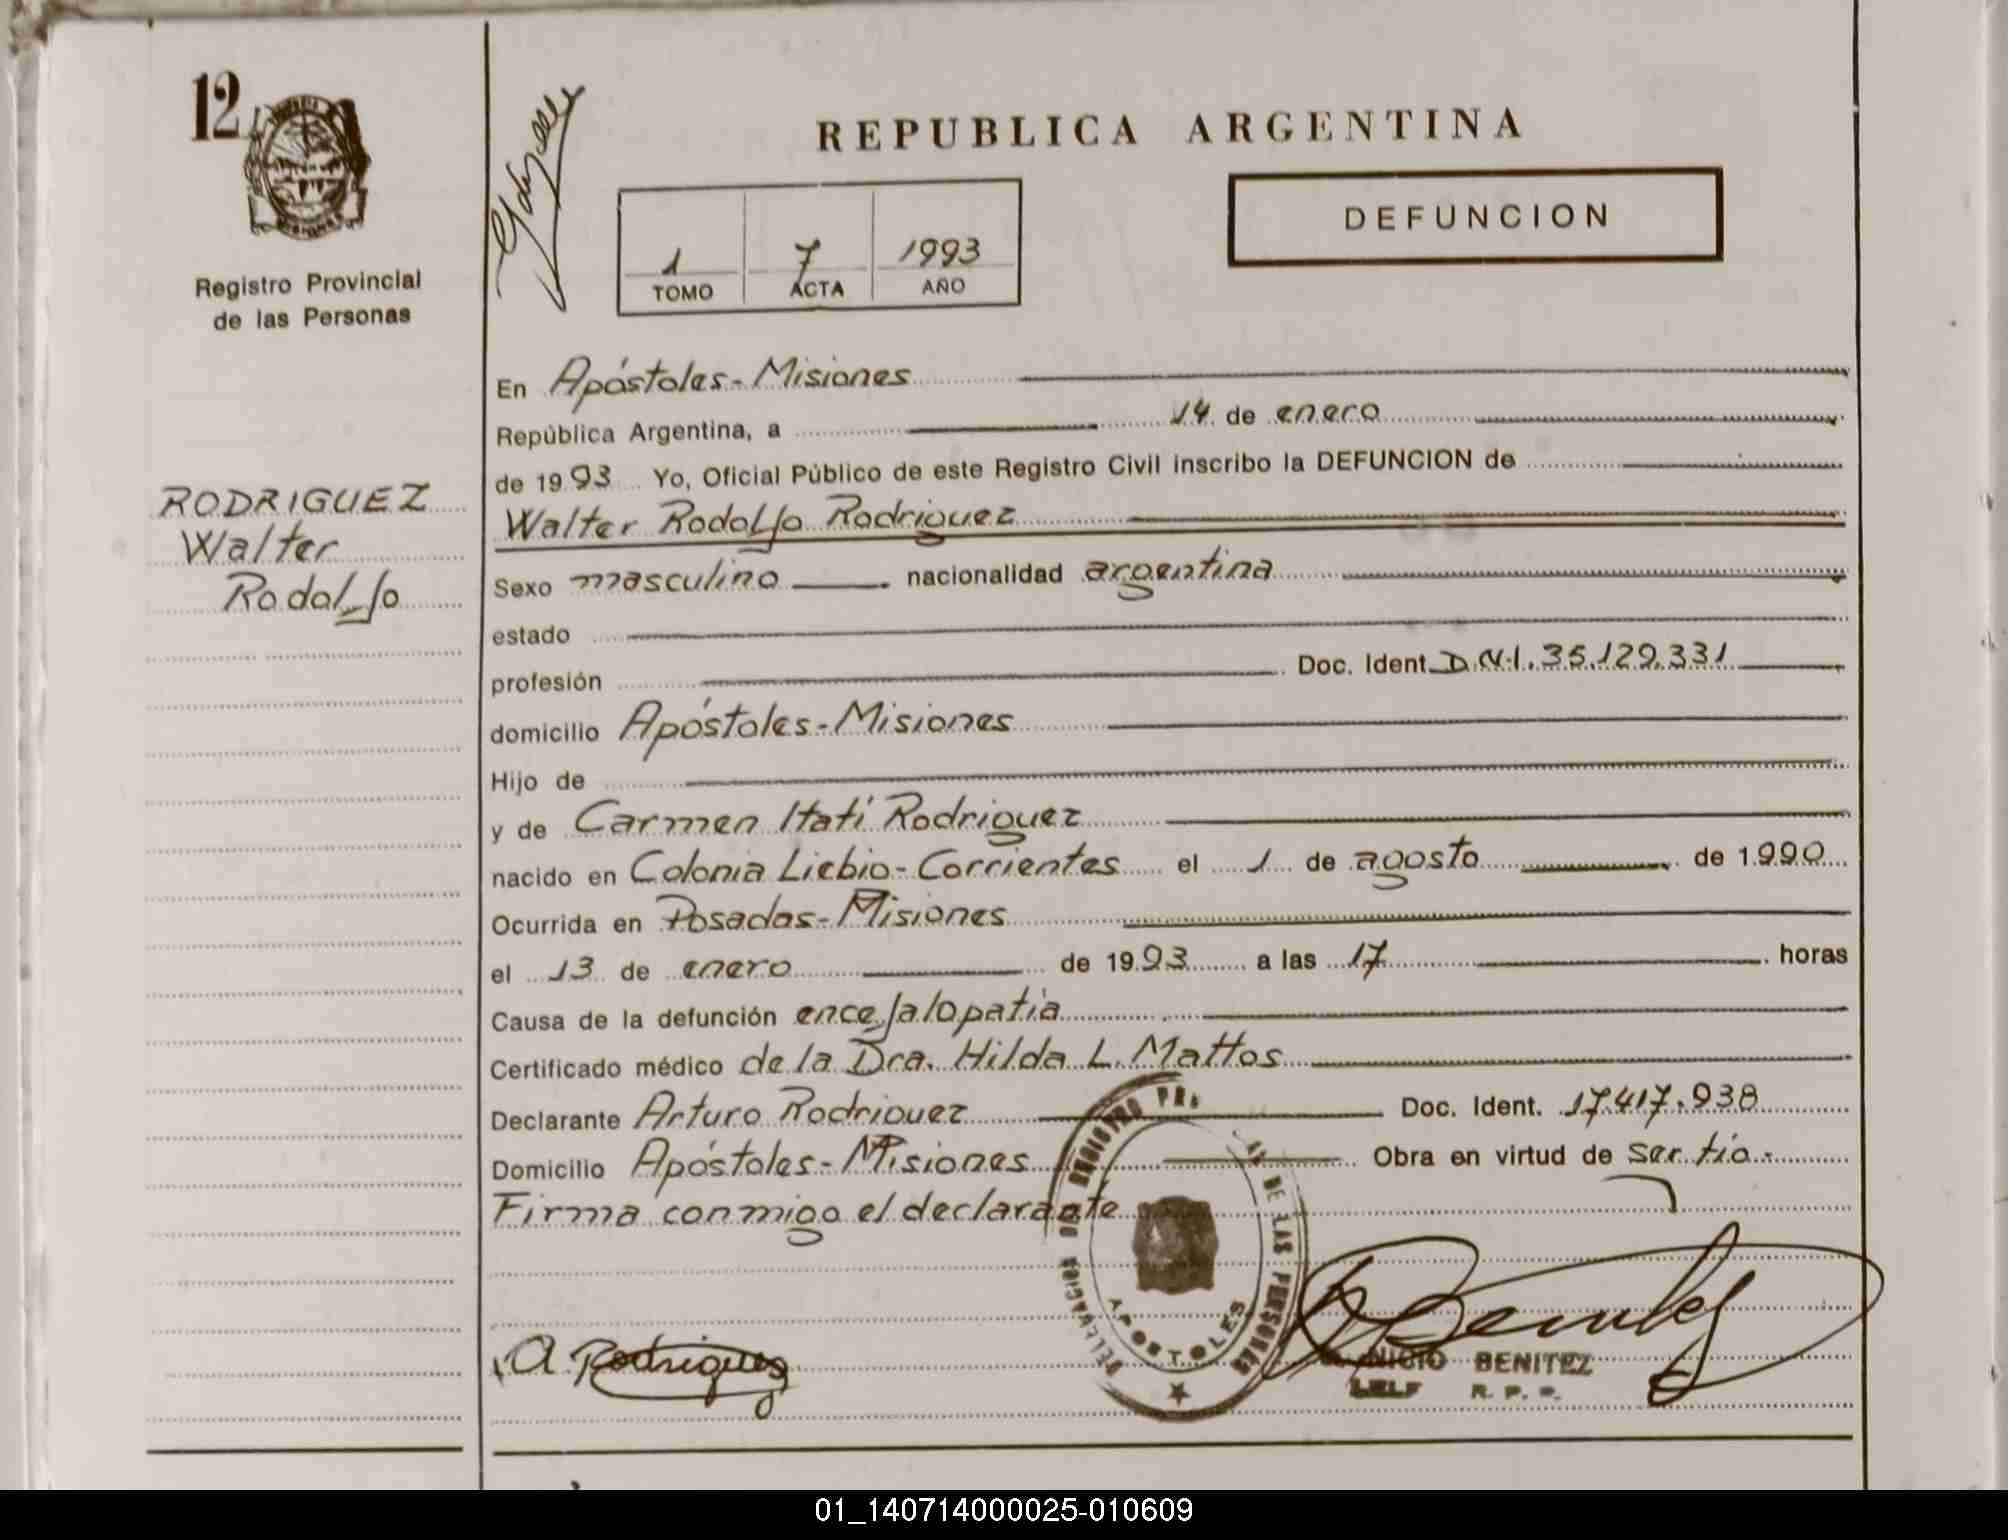 12
Registro Provincial
de las Personas
RODRIGUEZ
Walter
Rodolfo
REPUBLICA ARGENTINA
1 7 1993
TOMO ACTA AÑO
DEFUNCION
En Apóstoles - Misiones
República Argentina, a 14 de enero
de 1993 Yo, Oficial Público de este Registro Civil inscribo la DEFUNCION de
Walter Rodolfo Rodriguez
Sexo masculino nacionalidad argentina
estado
profesión Doc. Ident. D.N.I. 35.129.331
domicilio Apóstoles - Misiones
Hijo de
y de Carmen Itatí Rodriguez
nacido en Colonia Liebio - Corrientes el 1 de agosto de 1990
Ocurrida en Posadas - Misiones
el 13 de enero de 1993 a las 17 horas
Causa de la defunción encefalopatía
Certificado médico de la Dra. Hilda L. Mattos
Declarante Arturo Rodriguez Doc. Ident. 17.417.938
Domicilio Apóstoles - Misiones Obra en virtud de ser tío.
Firma conmigo el declarante
DELEGACION DEL REGISTRO DE LAS PERSONAS
APOSTOLES
A. Rodriguez
BENITEZ
R. P. P.
01_140714000025-010609